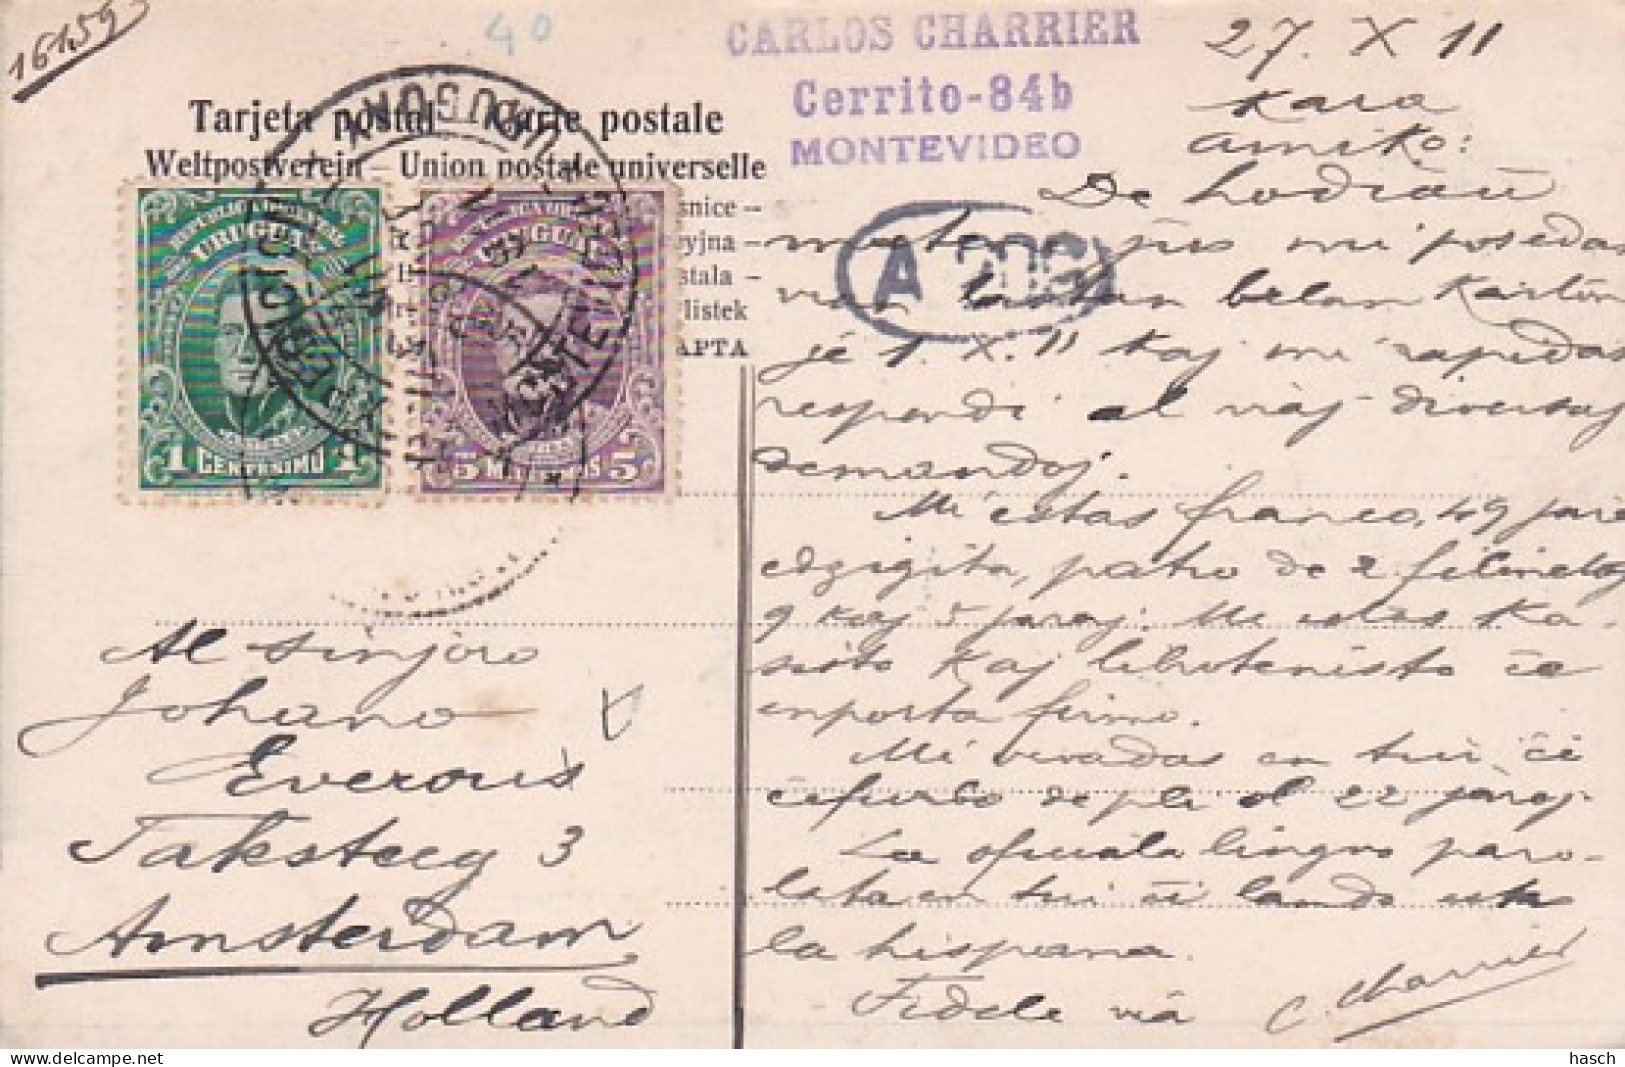 16159
40
CARLOS CHARRIER
Cerrito-84b
MONTEVIDEO
27. X 11
Kara
amiko:
Tarjeta postal Carte postale
Weltpostverein – Union postale universelle
snice –
yjna –
stala –
listek
APTA
REPUBLICA
URUGUAY
1 CENTESIMO 1
URUGUAY
5 MILESIMOS 5
MONTEVIDEO
A 206
De hodiaŭ
jus mi posedas
vian tastan belan Karton
je 1. X. 11 kaj mi rapidas
respondi al viaj diversaj
demandoj.
Mi estas franco, 49 jare
edzigita, patro de 2 filinetoj
9 kaj 5 jaroj. Mi estas Ka-
sisto kaj librotenisto ĉe
enporta firmo.
Mi vivadas en tiu ĉi
ĉefurbo depli ol 22 jaroj.
La oficiala lingvo paro-
lata en tiu ĉi lando estas
la hispana.
Fidele via C. Charrier
Al sinjoro
Johano
Everouis
Taksteeg 3
Amsterdam
Holland
hasch